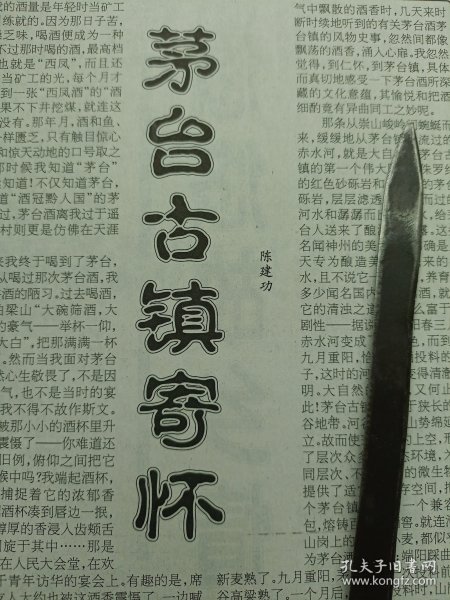 茅台古镇寄怀
陈建功
的酒量是年轻时当矿工
练就的。因为那日子苦,
乏味,喝酒便成为一种
不过那时喝的酒,最高档
也就是“西凤”,而且还
当矿工的光,每个月才
到一张“西凤酒”的“酒
果不下井挖煤,就连这
没有。那年月,酒和鱼、
一样匮乏,只有触目惊心
和惊天动地的口号取之
那时候我知道“茅台”
知道!不仅知道茅台,
道“酒冠黔人国”的茅
过,茅台酒离我过于遥
村则更是仿佛在天涯
来我终于喝到了茅台,
从喝过那次茅台酒,我
酒的陋习。过去喝酒,
梁山“大碗筛酒,大
的豪气——举杯一仰,
大白”,把那满满一杯
。然而当我面对茅台
然心生敬畏了,不是因
气,也不是当时的宴
我不得不故作斯文。
被那小小的酒杯里升
震慑了——你难道还
旧例,俯仰之间把它
喉中吗?我端起酒杯,
捕捉着它的浓郁香
酒杯凑到唇边一抿,
醇厚的香浸入齿颊舌
回旋于其中……那是
在人民大会堂,在欢
青年访华的宴会上。有趣的是,席
气中飘散的酒香时,几天来时
断时续地听到的有关茅台酒茅
台镇的风物史事,忽然间都像
飘荡的酒香,涌入心扉。我忽然
觉得,到仁怀,到茅台镇,具体
而真切地感受一下茅台酒所深
藏的文化意蕴,其愉悦和把酒
细酌竟有异曲同工之妙呢。
那条从崇山峻岭
来,缓缓地从茅台镇
赤水河,就是大自
镇的第一个伟大
的红色砂砾岩
砾岩,层层渗透
河水和潺潺而
台人送来了酿
名闻神州的美
天专为酿造美
水,且不说它一
多少闻名国内
它的清浊之
剧性——据说
赤水河变成
九月重阳,恰
子,这时的河
明。大自然的
此!茅台古镇
谷地带。河谷
立。故而使
了层次众多
同层次、不
提供了适
包,熔铸
山岗上的
为茅台酒
新麦熟了。九月重阳,
谷高粱熟了。一个端午,一
孔夫子旧书网